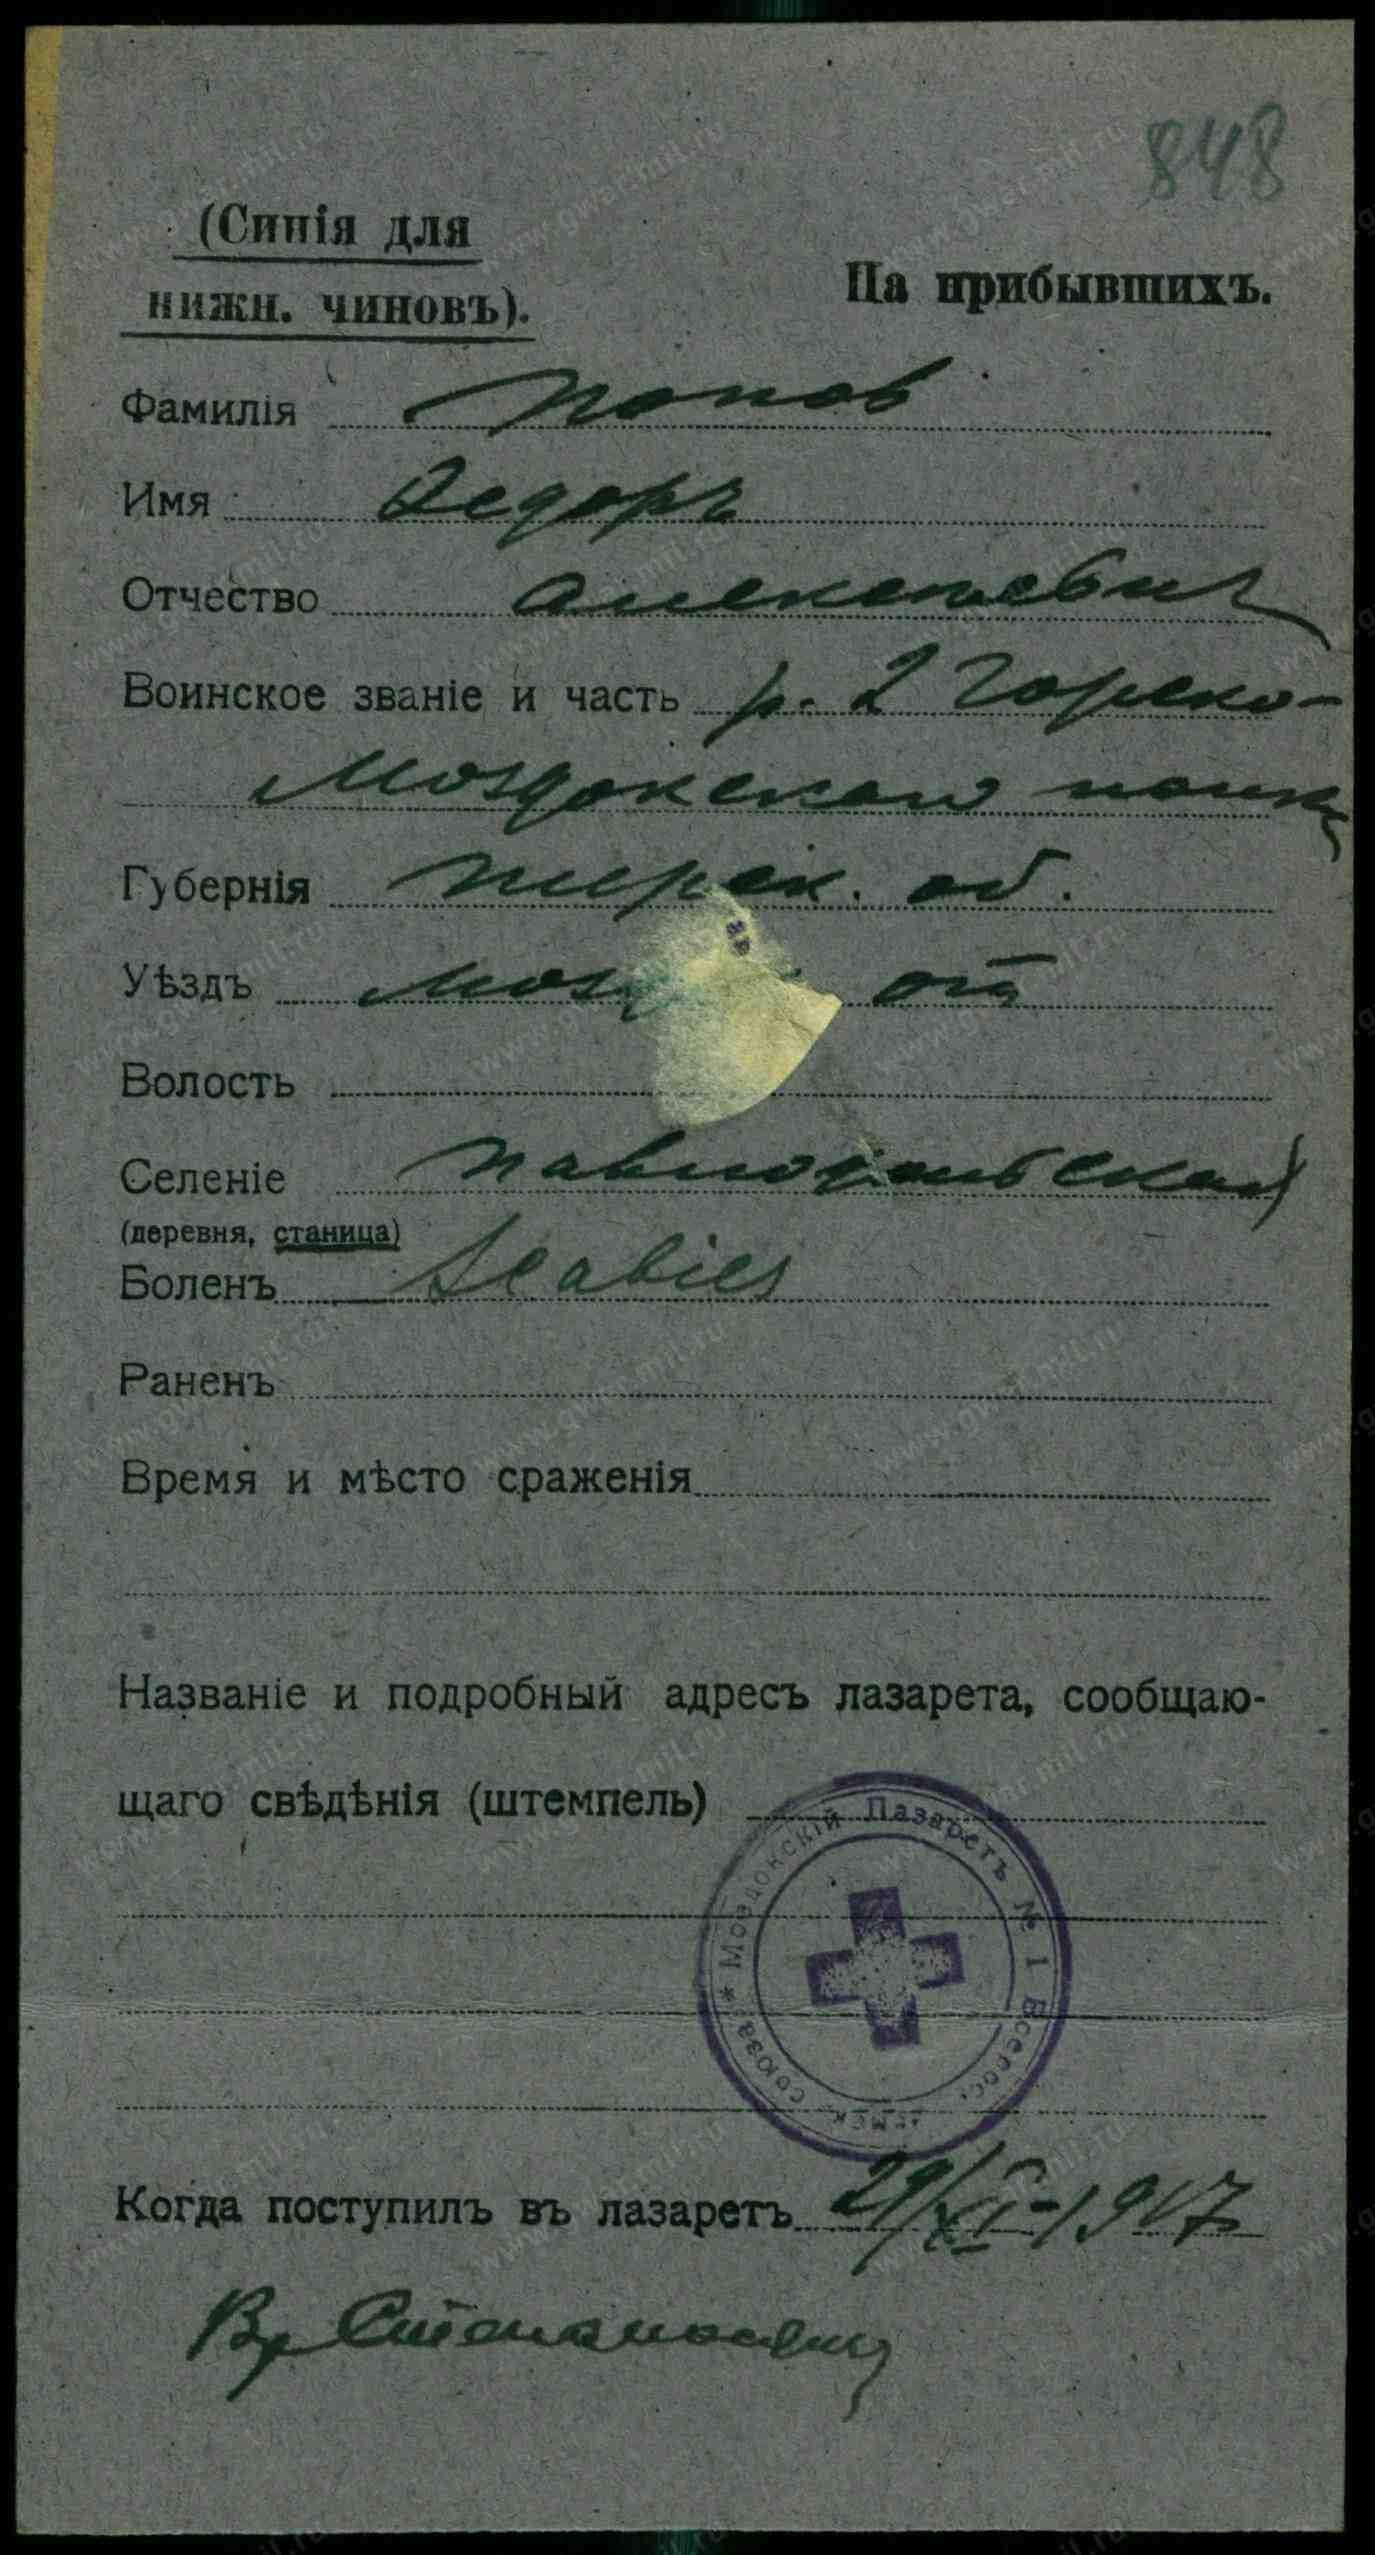 848
(Синія для
нижн. чиновъ).
На прибывшихъ.
Фамилія Попов
Имя Федоръ
Отчество Алексеевич
Воинское званіе и часть р. 2 Горско-
Моздокскаго полка
Губернія Терск. об.
Уѣздъ Мозд от
Волость
Селеніе Павлодольская
(деревня, станица)
Боленъ Scabies
Раненъ
Время и мѣсто сраженія
Названіе и подробный адресъ лазарета, сообщаю-
щаго свѣдѣнія (штемпель)
Моздокскій Лазаретъ № 1 Всерос. земск. союза *
Когда поступилъ въ лазаретъ 29/XI-1917
Вр